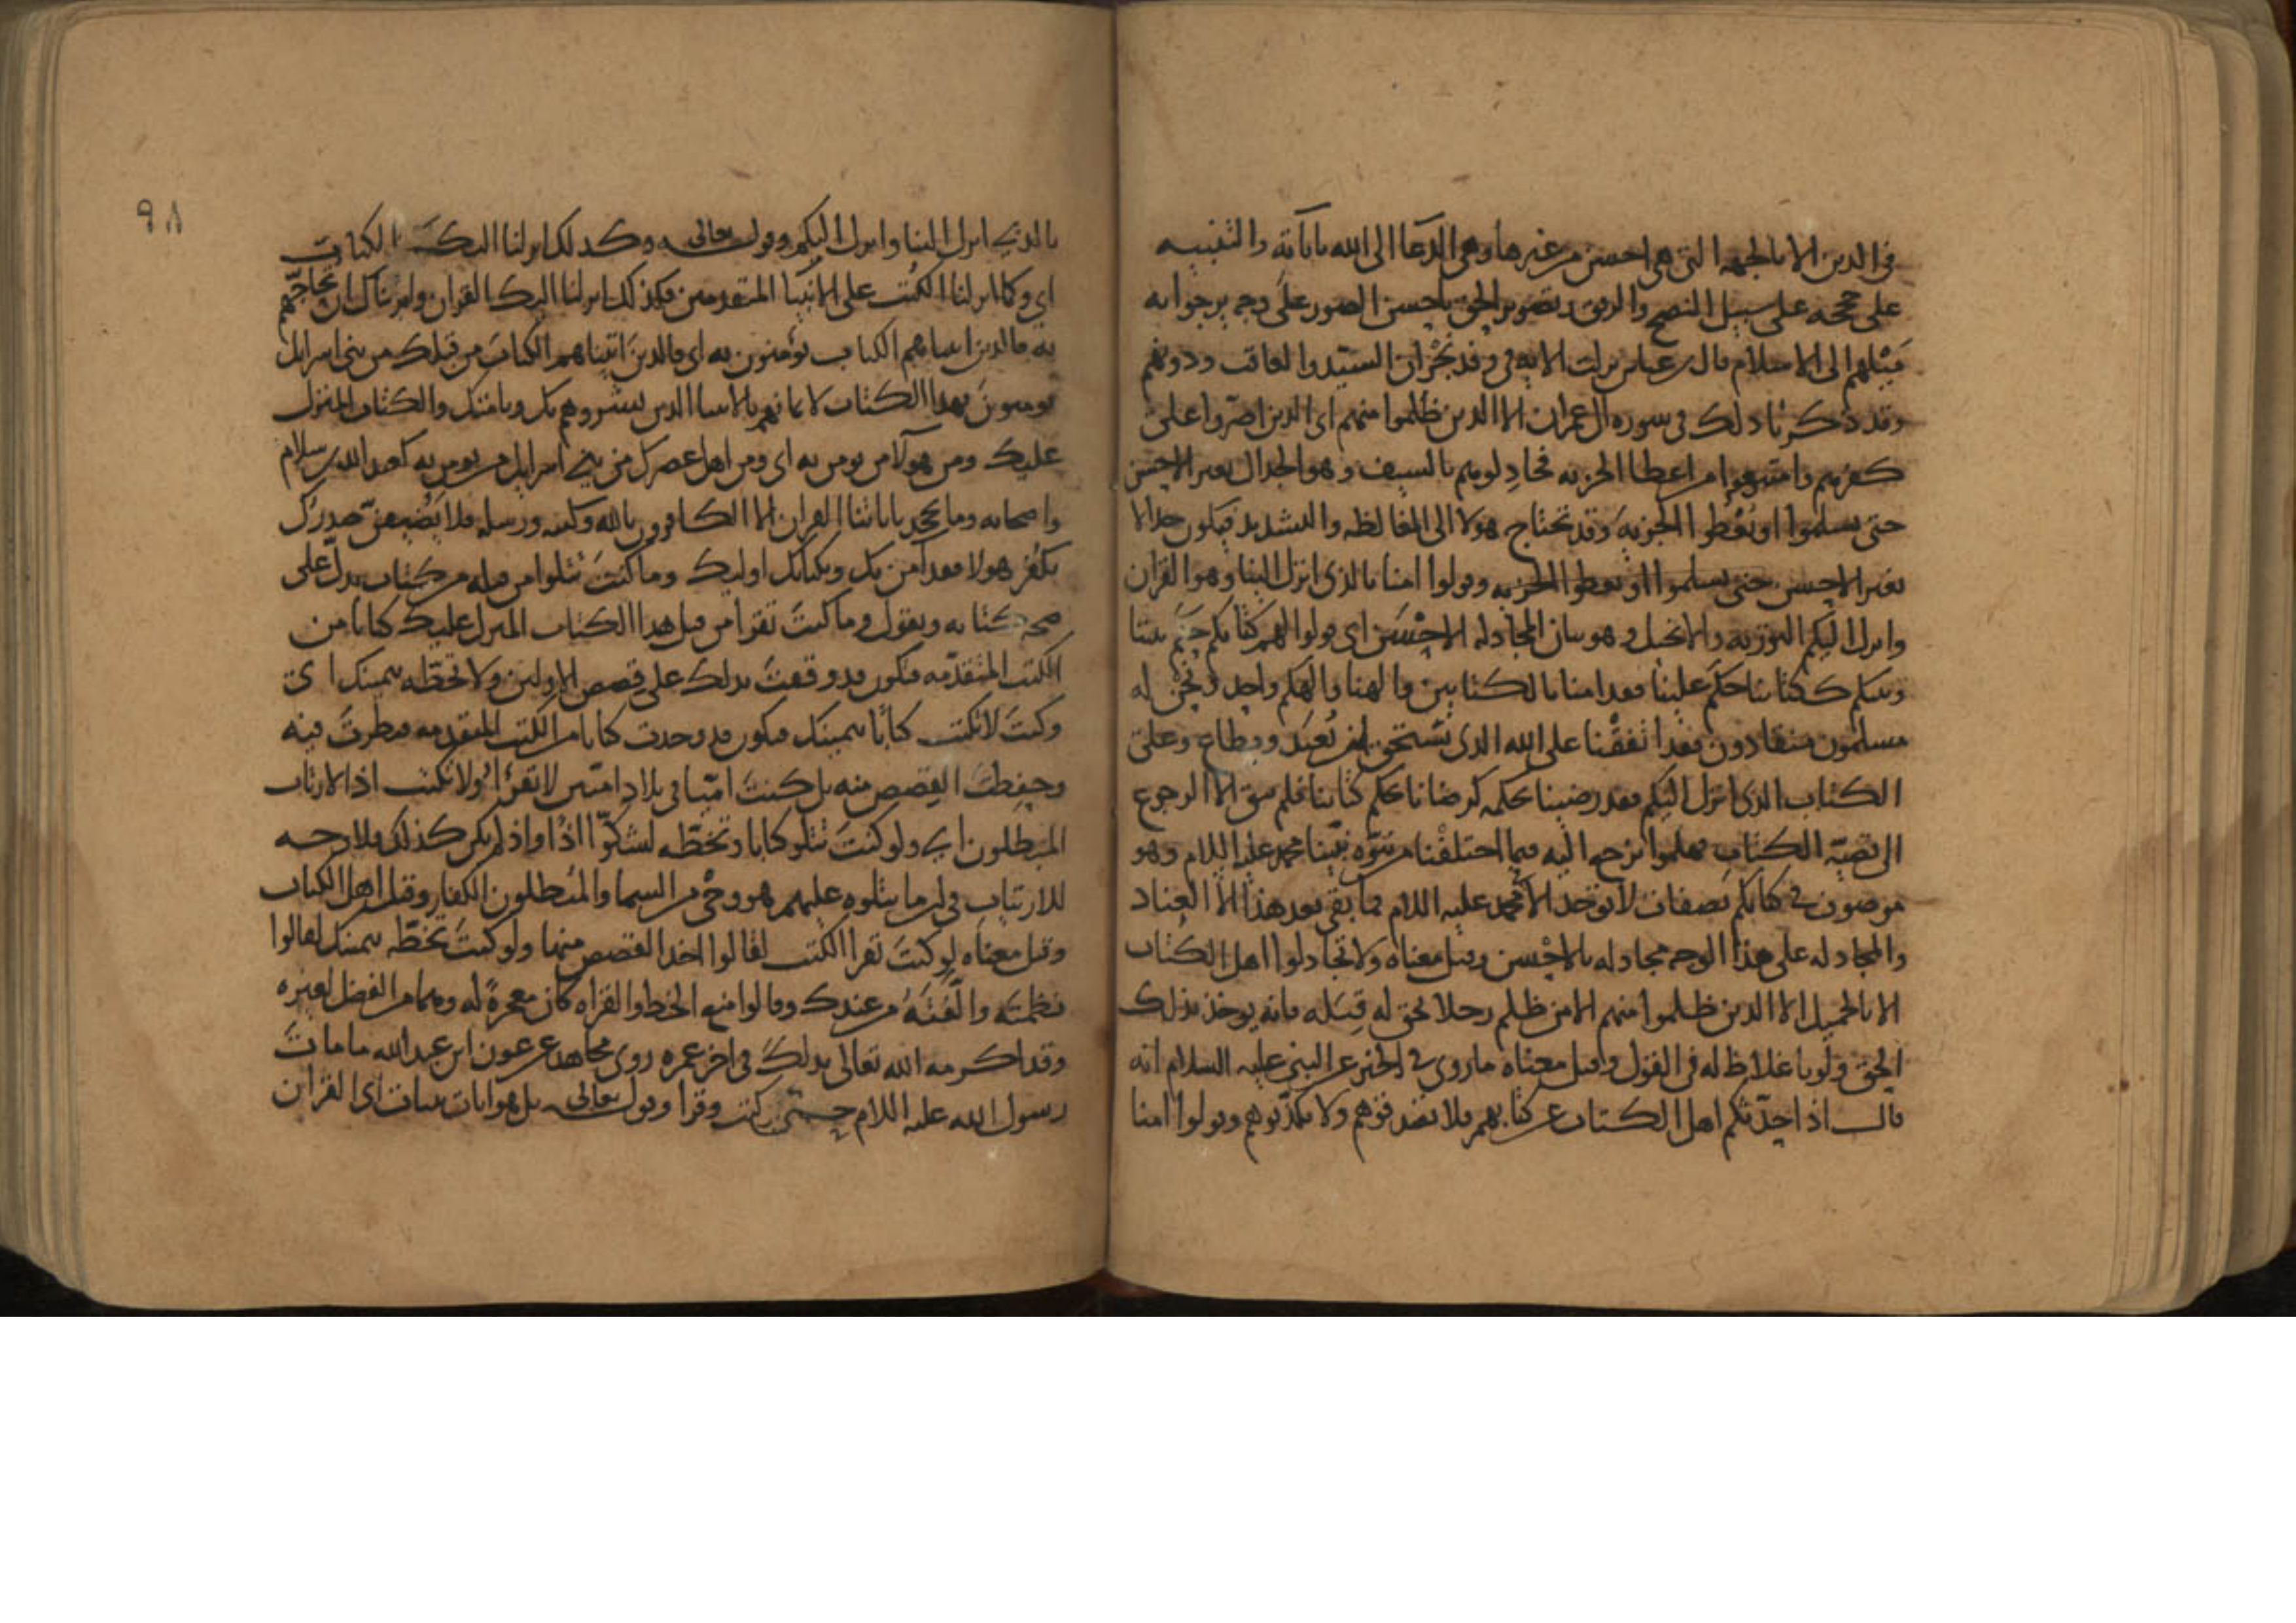 في الدين الا بالجهه التي هي احسن من غيرها وهي الدعا الى الله باياته والتنبيه
على حججه على سبيل النصح والرفق وتصوير الحق باحسن الصور على وجه يرجوا به
ميلهم الى الاسلام قال ابن عباس نزلت الايه في وفد نجران السيد والعاقب وذويهم
وقد ذكرنا ذلك في سوره ال عمران الا الذين ظلموا منهم اى الذين اصروا على
كفرهم وامتنعوا من اعطا الجزيه فجادلوهم بالسيف وهو الجدال بغير الاحسن
حتى يسلموا او يعطوا الجزيه وقد تحتاج هولا الى المغالظه والتشديد فيكون جدالا
بغير الاحسن حتى يسلموا او يعطوا الجزيه وقولوا امنا بالذى انزل الينا وهو القران
وانزل اليكم التوريه والانجيل وهو بيان المجادله الاحسن اى قولوا لهم كتابكم حكم بيننا
وبينكم ككتابنا حكم علينا فقد امنا بالكتابين والهنا والهكم واحد ونحن له
مسلمون منقادون فقد اتفقنا على الله الذى يستحق ان يعبد ويطاع وعلى
الكتاب الذى انزل اليكم فقد رضينا بحكمه كرضانا بحكم كتابنا فلم يبق الا الرجوع
الى قضيه الكتاب فهلموا نرجع اليه فيما اختلفنا من نبوه نبينا محمد عليه السلام وهو
موصوف في كتابكم بصفات لا توجد الا لمحمد عليه السلام فما بقى بعد هذا الا العناد
والمجادله على هذا الوجه مجادله بالاحسن وقيل معناه ولا تجادلوا اهل الكتاب
الا بالجميل الا الذين ظلموا منهم الا من ظلم رجلا بحق له قبله فانه يوخذ بذلك
الحق ولو باغلاظ له في القول وقيل معناه ما روى في الخبر عن النبى عليه السلام انه
قال اذا حدثكم اهل الكتاب عن كتابهم فلا تصدقوهم ولا تكذبوهم وقولوا امنا
٩٨
بالذي انزل الينا وانزل اليكم وقوله تعالى وكذلك انزلنا اليك الكتاب
اى وكما انزلنا الكتب على الانبيا المتقدمين فكذلك انزلنا اليك القران وامرناك ان تحاجهم
به فالذين اتيناهم الكتاب يؤمنون به اى فالذين اتيناهم الكتاب من قبلك من بنى اسرايل
يومنون بهذا الكتاب لايمانهم بالانبيا الذين بشروهم بك وبامتك والكتاب المنزل
عليك ومن هولا من يومن به اى ومن اهل عصرك من بني اسرايل من يومن به كعبد الله بن سلام
واصحابه وما يجحد باياتنا القران الا الكافرون بالله وكتبه ورسله فلا يضيقن صدرك
بكفر هولا فقد امن بك وبكتابك اوليك وما كنت تتلوا من قبله من كتاب يدل على
صحه كتابه ويقول وما كنت تقرا من قبل هذا الكتاب المنزل عليك كتابا من
الكتب المتقدمه فتكون قد وقفت بذلك على قصص الاولين ولا تخطه بيمينك اى
وكنت لا تكتب كتابا بيمينك فتكون قد وجدت كتابا من الكتب المتقدمه فنظرت فيه
وحفظت القصص منه بل كنت اميا في بلاد اميين لا تقرا ولا تكتب اذا لارتاب
المبطلون اي ولو كنت تتلو كتابا وتخطه لشكوا اذا واذ لم يكن كذلك فلا وجه
للارتياب في ان ما يتلوه عليهم هو وحى من السما والمبطلون الكفار وقيل اهل الكتاب
وقيل معناه لو كنت تقرا الكتب لقالوا اخذ القصص منها ولو كنت تخطه بيمينك لقالوا
نظمته والفته من عندك وقالوا منع الخط والقراه كان معجزه له ومما من الفضل لغيره
وقد اكرمه الله تعالى بذلك في اخر عمره روى مجاهد عن عون ابن عبد الله ما مات
رسول الله عليه السلام حتى كتب وقرا وقوله تعالى بل هو ايات بينات اى القران